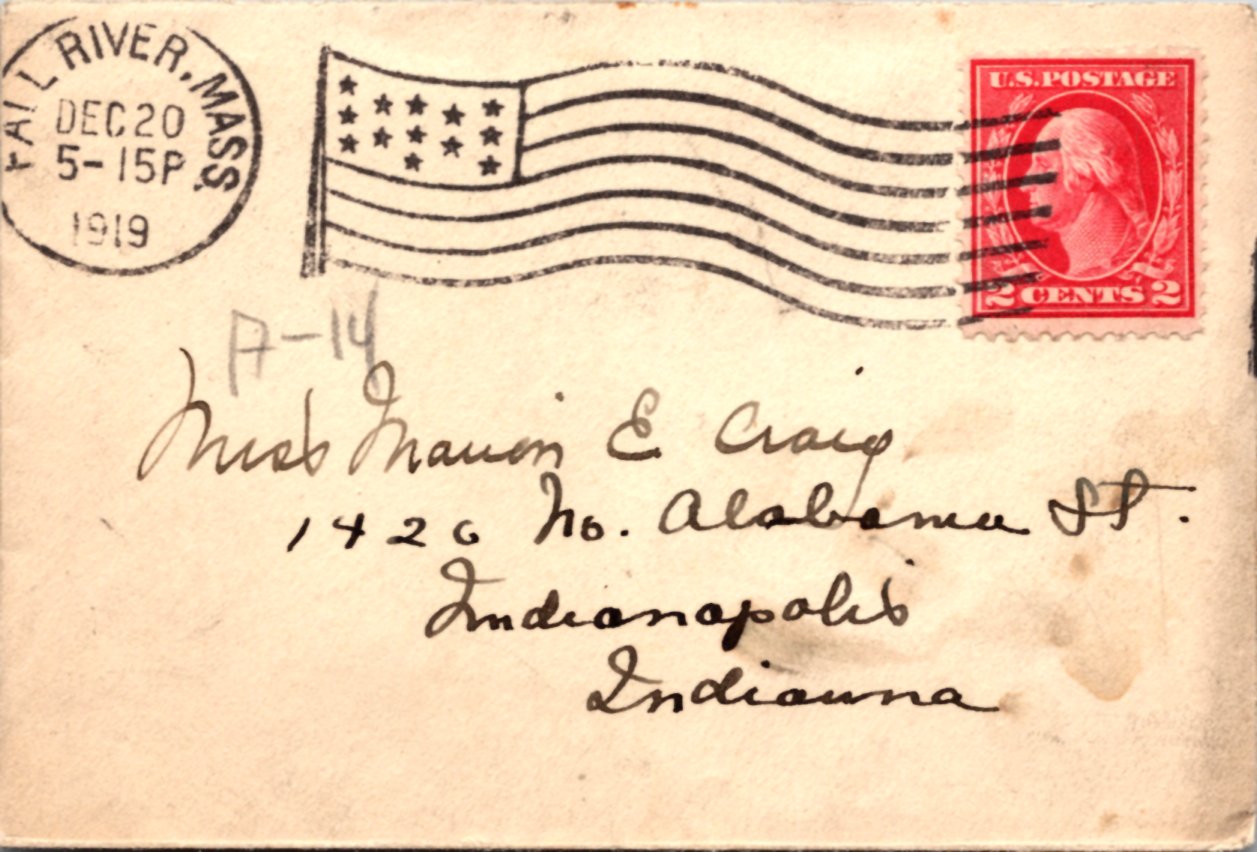 FALL RIVER, MASS.
DEC 20
5-15P
1919
U.S. POSTAGE
2 CENTS 2
A-14
Miss Marion E Craig
1426 No. Alabama St.
Indianapolis
Indiana